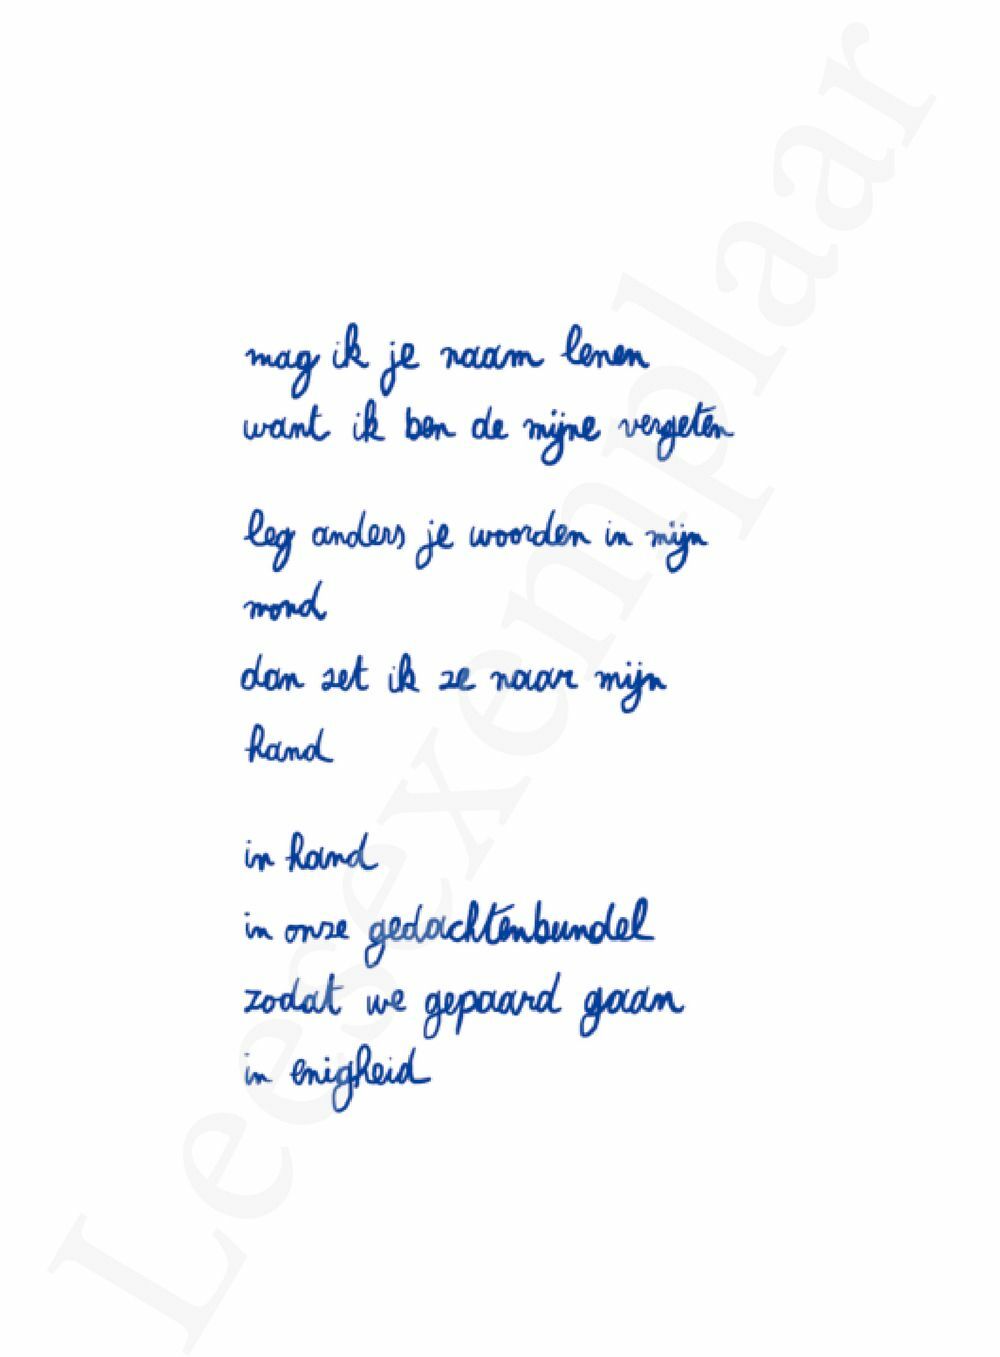 mag ik je naam lenen
want ik ben de mijne vergeten
leg anders je woorden in mijn
mond
dan zet ik ze naar mijn
hand
in hand
in onze gedachtenbundel
zodat we gepaard gaan
in enigheid
Leesexemplaar